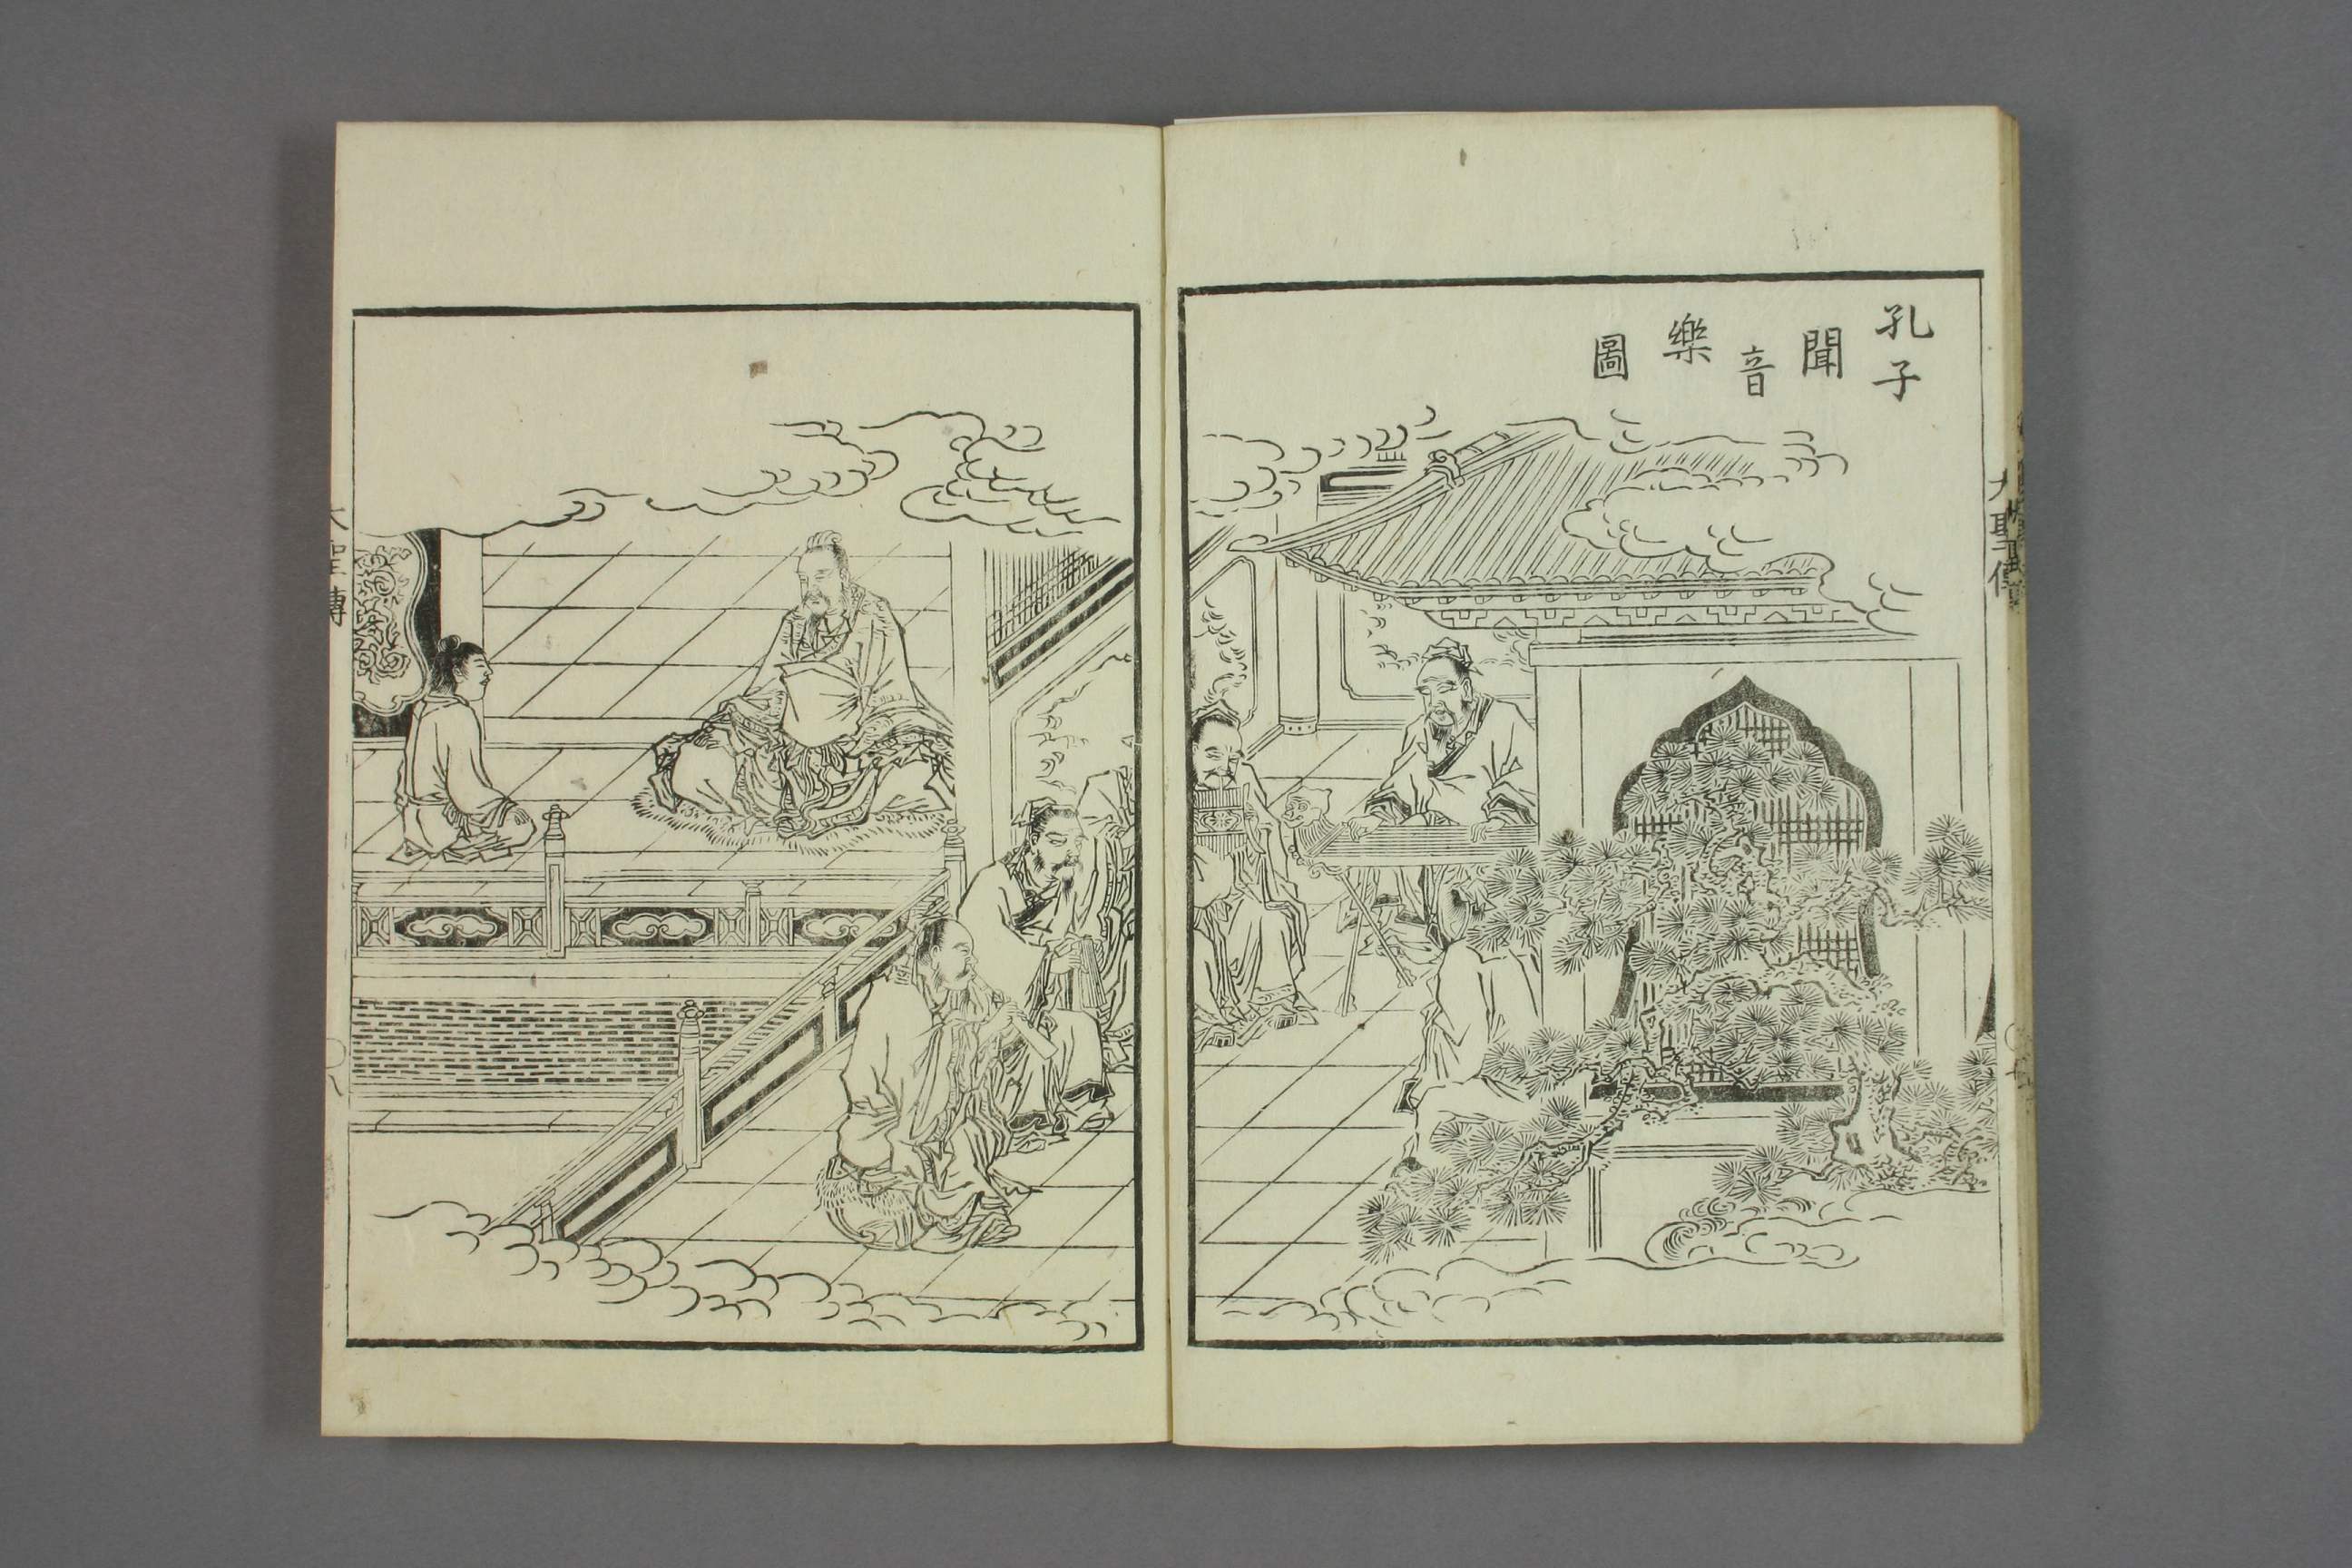 孔子
聞
音
樂
圖
大聖傳
大聖傳
〇八